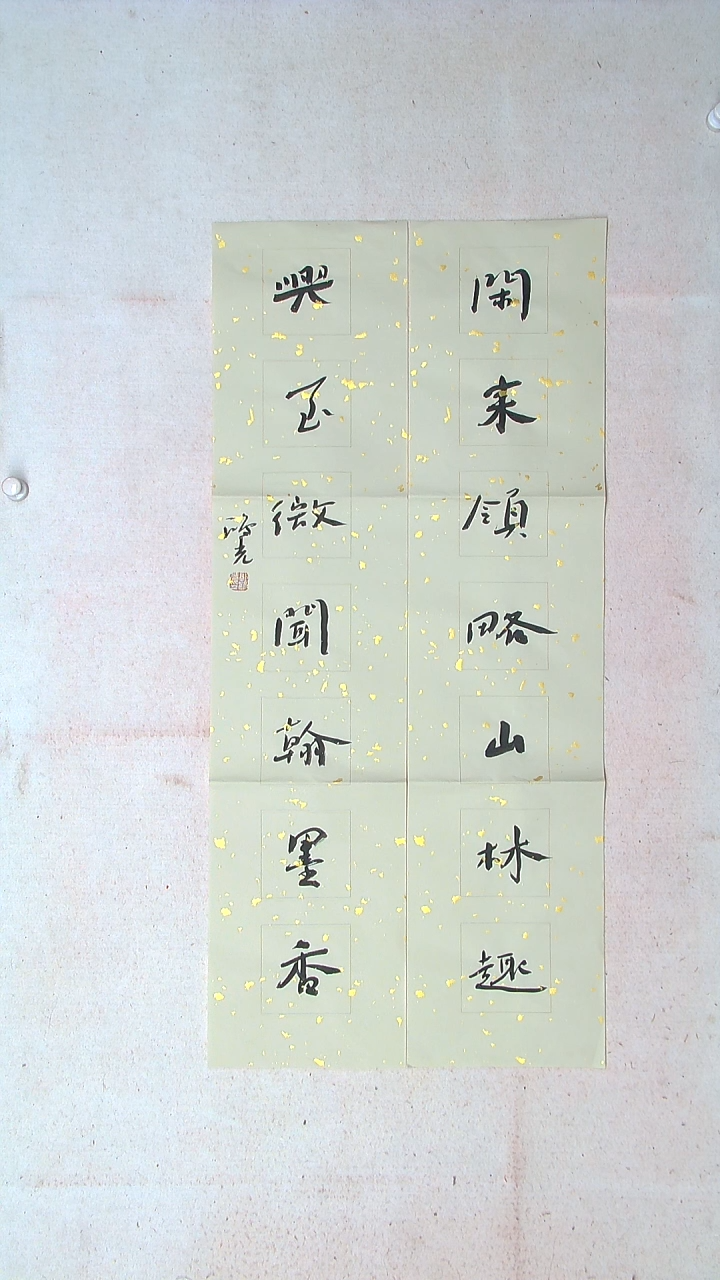 閑来領略山林趣
興至微聞翰墨香